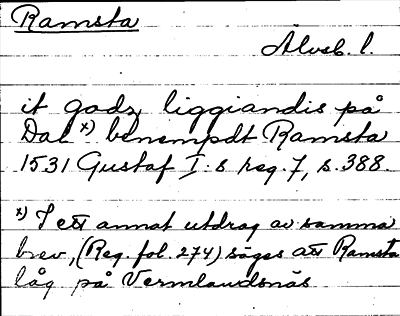 Ramsta
Älvsb. l.
it godz liggiandis på
Dal x) benempdt Ramsta
1531 Gustaf I:s reg. 7, s. 388.
x) I ett annat utdrag av samma
brev, (Reg. fol. 274) säges att Ramsta
låg på Vermlandsnäs